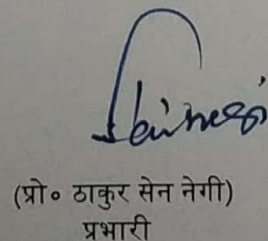 (प्रो० ठाकुर सेन नेगी)
प्रभारी